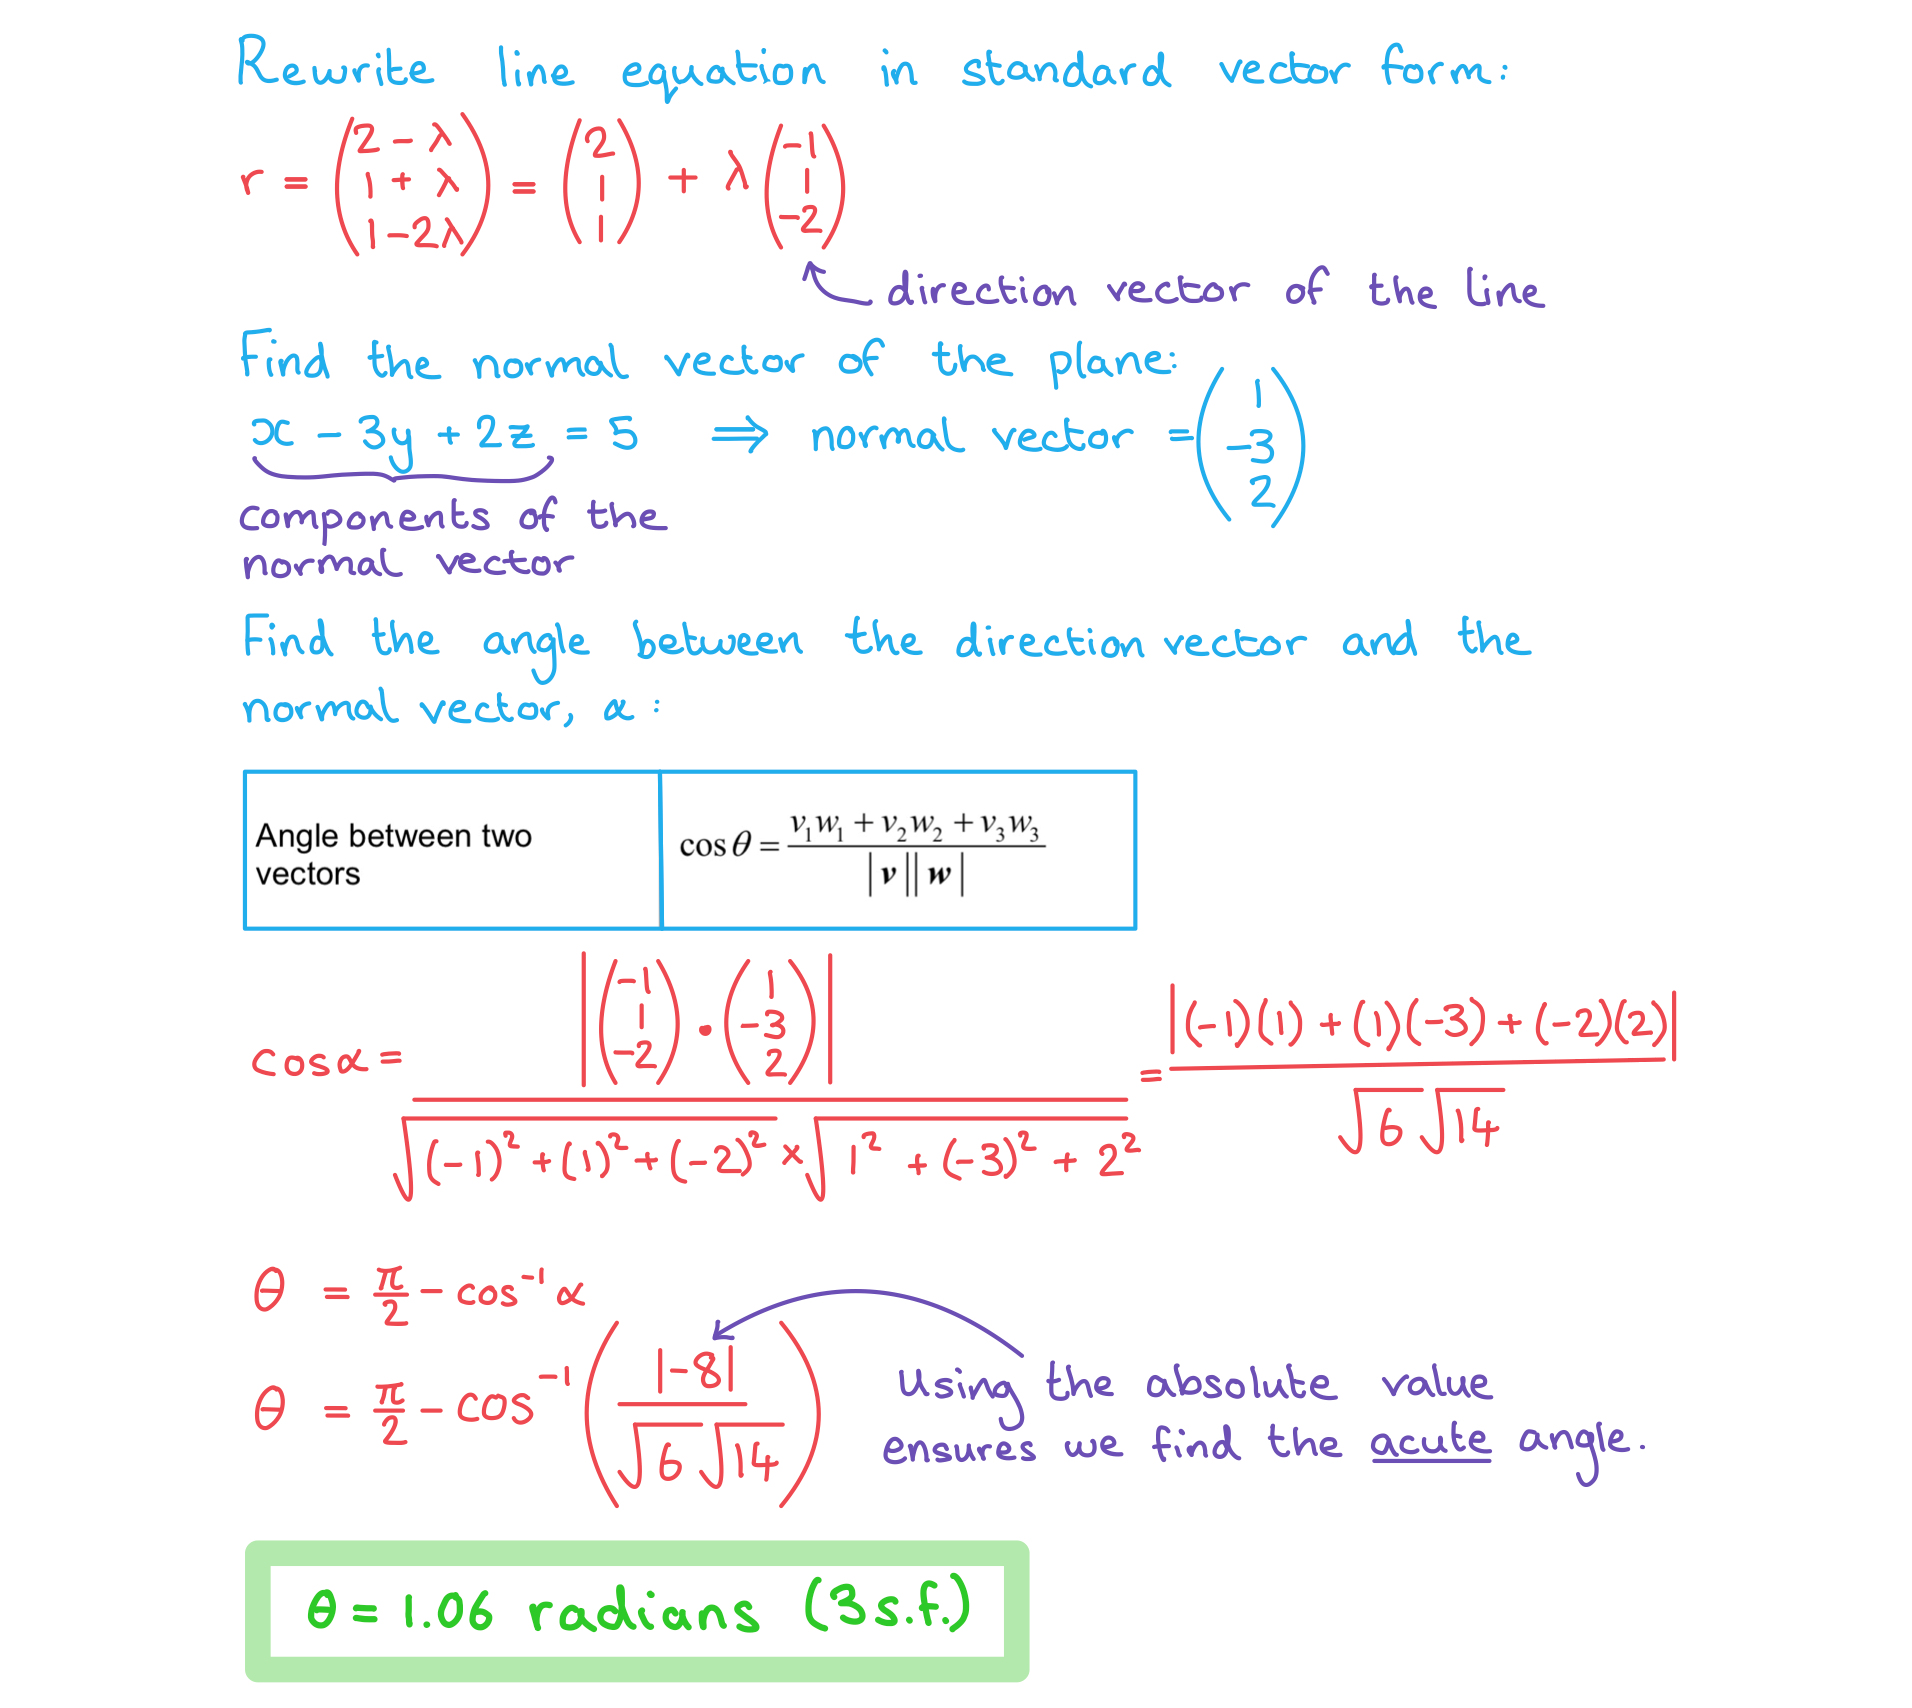 Rewrite line equation in standard vector form:
r = (2 - λ, 1 + λ, 1-2λ) = (2, 1, 1) + λ(-1, 1, -2)
direction vector of the line
Find the normal vector of the plane:
x - 3y + 2z = 5 ⟹ normal vector = (1, -3, 2)
components of the
normal vector
Find the angle between the direction vector and the
normal vector, α :
Angle between two
vectors
cos θ = (v₁w₁ + v₂w₂ + v₃w₃) / (|v||w|)
cosα = |(-1, 1, -2) · (1, -3, 2)| / (√((-1)² + (1)² + (-2)²) × √(1² + (-3)² + 2²)) = |(-1)(1) + (1)(-3) + (-2)(2)| / (√6 √14)
θ = π/2 - cos⁻¹ α
θ = π/2 - cos⁻¹ (|-8| / (√6 √14))
Using the absolute value
ensures we find the acute angle.
θ = 1.06 radians (3 s.f.)